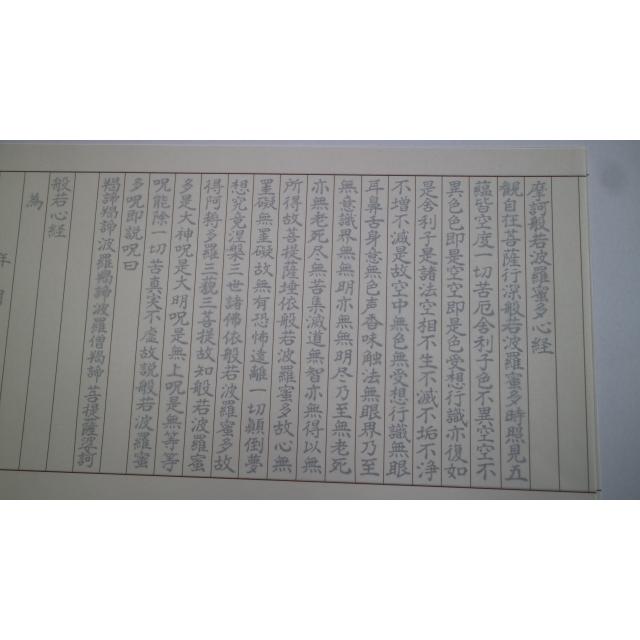 摩訶般若波羅蜜多心経
観自在菩薩行深般若波羅蜜多時照見五
蘊皆空度一切苦厄舎利子色不異空空不
異色色即是空空即是色受想行識亦復如
是舎利子是諸法空相不生不滅不垢不浄
不増不減是故空中無色無受想行識無眼
耳鼻舌身意無色声香味触法無眼界乃至
無意識界無無明亦無無明尽乃至無老死
亦無老死尽無苦集滅道無智亦無得以無
所得故菩提薩埵依般若波羅蜜多故心無
罣礙無罣礙故無有恐怖遠離一切顛倒夢
想究竟涅槃三世諸佛依般若波羅蜜多故
得阿耨多羅三藐三菩提故知般若波羅蜜
多是大神呪是大明呪是無上呪是無等等
呪能除一切苦真実不虚故説般若波羅蜜
多呪即説呪曰
羯諦羯諦波羅羯諦波羅僧羯諦 菩提薩婆訶
般若心経
為
年 月